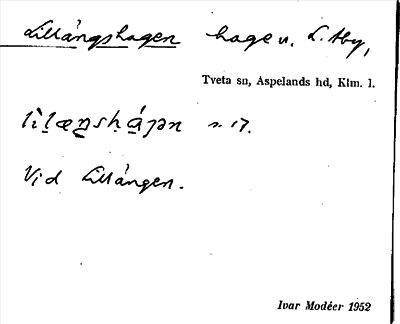 Lillängshagen hage v. L. Aby,
Tveta sn, Aspelands hd, Klm. l.
s. 17.
Vid Lillängen.
Ivar Modéer 1952